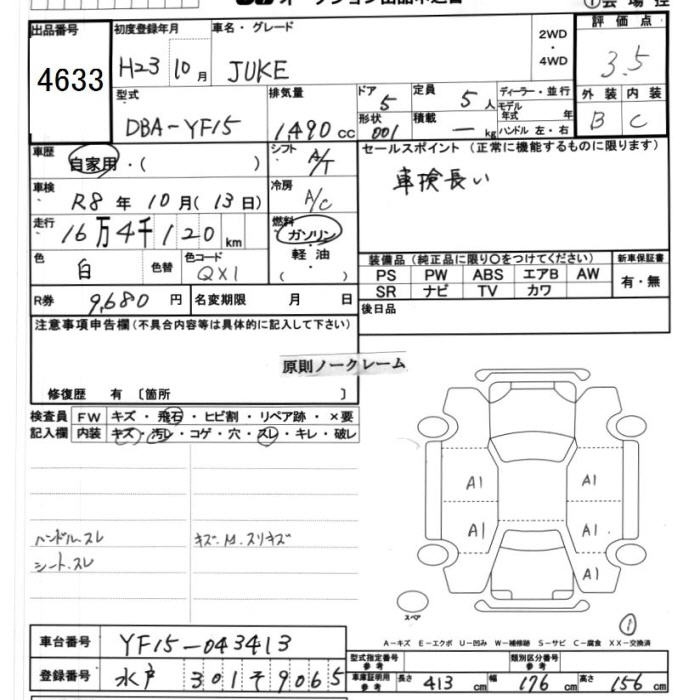 出品番号 初度登録年月 車名・グレード 2WD・4WD 評価点
4633 H23 10月 JUKE 3.5
型式 排気量 ドア 5 定員 5人 ディーラー・並行 外装 内装
DBA-YF15 1,490cc 形状 001 積載 ―kg モデル年式 年 ハンドル 左・右 B C
車歴 自家用・( ) シフト A/T セールスポイント (正常に機能するものに限ります)
車検 R8年10月(13日) 冷房 A/C 車検長い
走行 16万4千120km 燃料 ガソリン・軽油・( )
色 白 色替 色コード QX1 装備品 (純正品に限り〇をつけてください) 新車保証書
PS PW ABS エアB AW 有・無
SR ナビ TV カワ
R券 9,680円 名変期限 月 日 後日品
注意事項申告欄 (不具合内容等は具体的に記入して下さい)
原則ノークレーム
修復歴 有 〔箇所 〕
検査員 FW キズ・飛石・ヒビ割・リペア跡・×要
記入欄 内装 キズ・汚レ・コゲ・穴・スレ・キレ・破レ
A1 A1
A1 A1
ハンドルスレ キズ.M.スリキズ
シートスレ A1
スペア ①
A-キズ E-エクボ U-凹み W-補修跡 S-サビ C-腐食 XX-交換済
車台番号 YF15-043413
型式指定番号 参考 類別区分番号 参考
登録番号 水戸 301 そ 9065 車庫証明用 参考 長さ 413cm 幅 176cm 高さ 156cm